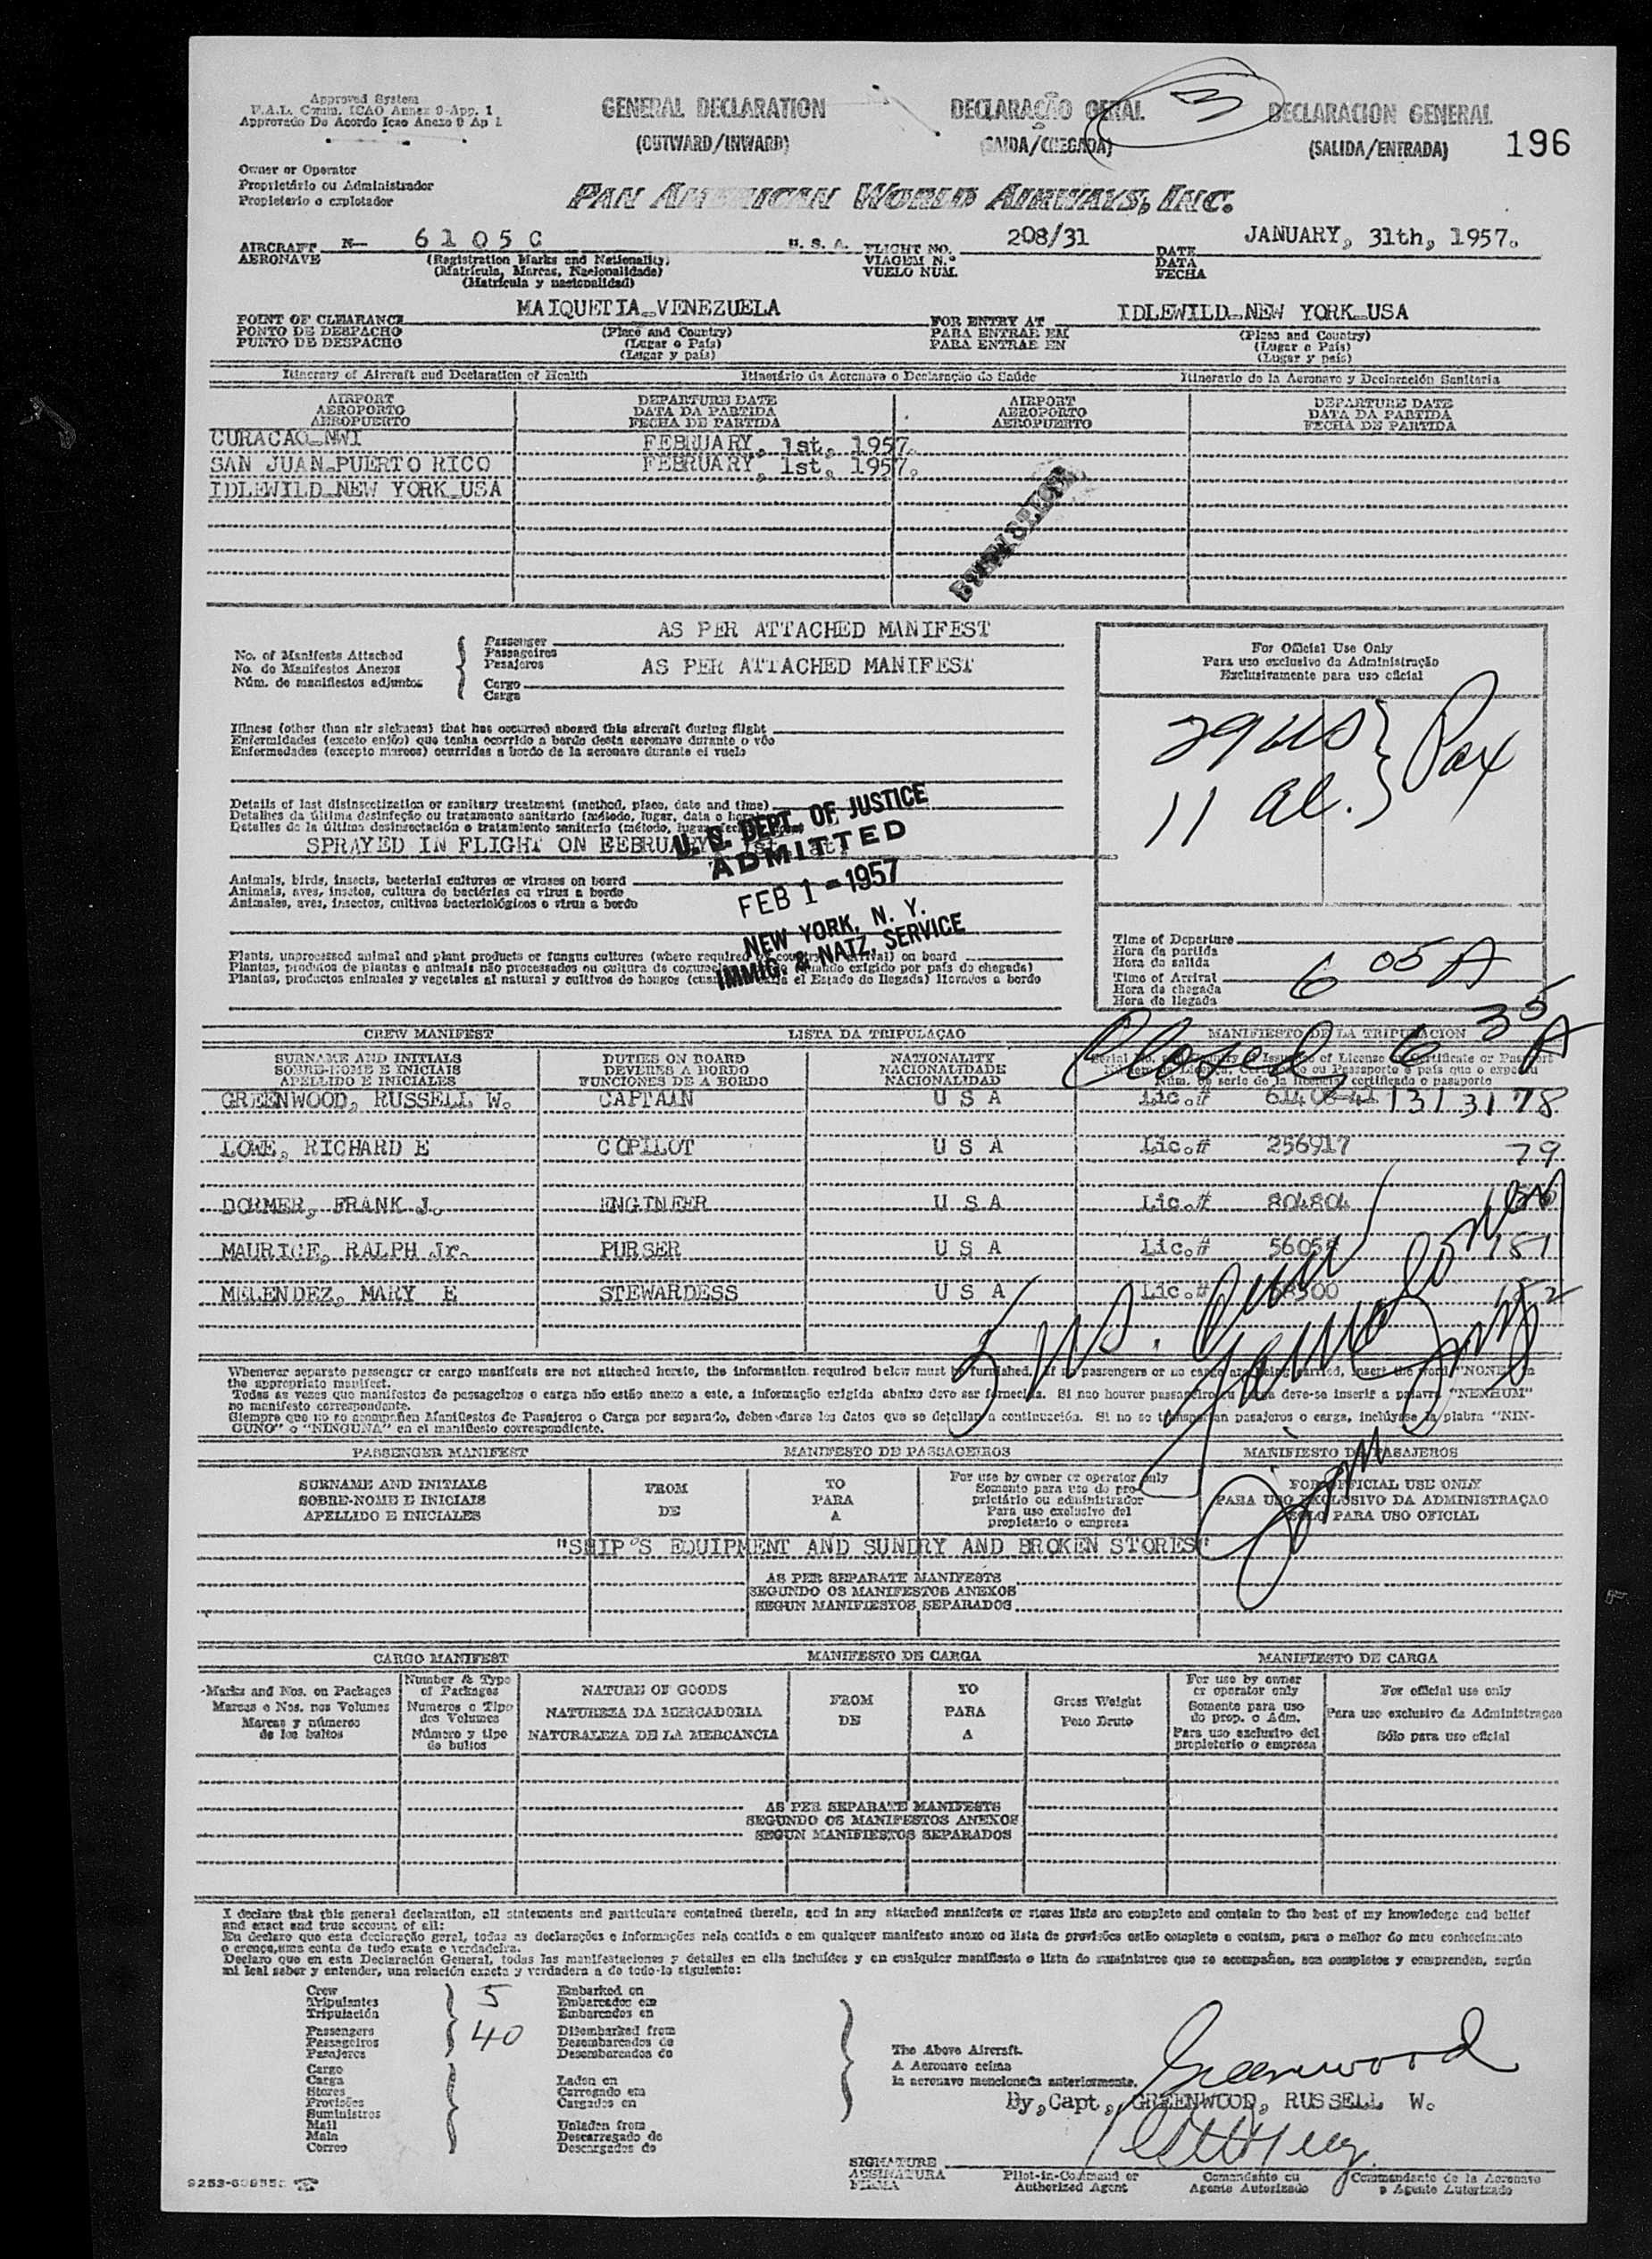 Approved System
F.A.L. Comm. ICAO Annex 9-App. 1
Approvado De Acordo Icao Anexo 9 Ap 1
GENERAL DECLARATION
(OUTWARD/INWARD)
DECLARAÇÃO GERAL
(SAIDA/CHEGADA)
DECLARACION GENERAL
(SALIDA/ENTRADA)
196
Owner or Operator
Proprietário ou Administrador
Propietario o explotador
PAN AMERICAN WORLD AIRWAYS, INC.
AIRCRAFT N- 6105C U. S. A. FLIGHT NO. 208/31 DATE JANUARY, 31th, 1957.
AERONAVE VIAGEM N.º DATA
VUELO NUM. FECHA
(Registration Marks and Nationality)
(Matrícula, Marcas, Nacionalidade)
(Matrícula y nacionalidad)
POINT OF CLEARANCE MAIQUETIA-VENEZUELA FOR ENTRY AT IDLEWILD-NEW YORK-USA
PONTO DE DESPACHO (Place and Country) PARA ENTRAR EM (Place and Country)
PUNTO DE DESPACHO (Lugar o País) PARA ENTRAR EN (Lugar o País)
(Lugar y país) (Lugar y país)
Itinerary of Aircraft and Declaration of Health Itinerário da Aeronave e Declaração de Saúde Itinerario de la Aeronave y Declaración Sanitaria
AIRPORT DEPARTURE DATE AIRPORT DEPARTURE DATE
AEROPORTO DATA DA PARTIDA AEROPORTO DATA DA PARTIDA
AEROPUERTO FECHA DE PARTIDA AEROPUERTO FECHA DE PARTIDA
CURACAO-NWI FEBRUARY, 1st, 1957.
SAN JUAN-PUERTO RICO FEBRUARY, 1st, 1957.
IDLEWILD-NEW YORK-USA
No. of Manifests Attached
No. de Manifestos Anexos
Núm. de manifiestos adjuntos
Passenger AS PER ATTACHED MANIFEST
Passageiros
Pasajeros
Cargo AS PER ATTACHED MANIFEST
Carga
For Official Use Only
Para uso exclusivo da Administração
Exclusivamente para uso oficial
29 US } Pax
11 al.
Illness (other than air sickness) that has occurred aboard this aircraft during flight
Enfermidades (exceto enjôo) que tenha ocorrido a bordo desta aeronave durante o vôo
Enfermedades (excepto mareos) ocurridas a bordo de la aeronave durante el vuelo
Details of last disinsectization or sanitary treatment (method, place, date and time)
Detalhes da última desinfeção ou tratamento sanitario (método, lugar, data e
Detalles de la última desinsectación o tratamiento sanitario (método, lugar,
SPRAYED IN FLIGHT ON FEBRUARY 1st, at
U. S. DEPT. OF JUSTICE
ADMITTED
FEB 1 - 1957
NEW YORK, N. Y.
IMMIG & NATZ. SERVICE
Animals, birds, insects, bacterial cultures or viruses on board
Animais, aves, insetos, cultura de bactérias ou virus a bordo
Animales, aves, insectos, cultivos bacteriológicos o virus a bordo
Plants, unprocessed animal and plant products or fungus cultures (where required by country of arrival) on board
Plantas, produtos de plantas e animais não processados ou cultura de exigido por país de chegada)
Plantas, productos animales y vegetales al natural y cultivos de hongos el Estado de llegada) llevados a bordo
Time of Departure
Hora da partida
Hora de salida
Time of Arrival 6 05 A
Hora da chegada
Hora de llegada
Closed 6 35 A
CREW MANIFEST LISTA DA TRIPULAÇAO MANIFIESTO DE LA TRIPULACION
SURNAME AND INITIALS DUTIES ON BOARD NATIONALITY
SOBRE-NOME E INICIAIS DEVERES A BORDO NACIONALIDADE
APELLIDO E INICIALES FUNCIONES DE A BORDO NACIONALIDAD
Núm. de serie de la licencia, certificado o pasaporte
GREENWOOD, RUSSELL W. CAPTAIN U S A Lic.# 61408-41 1313178
LOWE, RICHARD E COPILOT U S A Lic.# 256917 79
DORMER, FRANK J. ENGINEER U S A Lic.# 804804
MAURICE, RALPH Jr. PURSER U S A Lic.# 181
MELENDEZ, MARY E STEWARDESS U S A Lic.#
Whenever separate passenger or cargo manifests are not attached hereto, the information required below must be furnished. If no passengers or no cargo are being carried, insert the word "NONE" in
the appropriate manifest.
Todas as vezes que manifestos de passageiros e carga não estão anexo a este, a informação exigida abaixo deve ser fornecida. Si nao houver passageiro ou carga deve-se inserir a palavra "NENHUM"
no manifesto correspondente.
Siempre que no se acompañen Manifiestos de Pasajeros o Carga por separado, deben darse los datos que se detallan a continuación. Si no se transportan pasajeros o carga, inclúyase la plabra "NIN-
GUNO" o "NINGUNA" en el manifiesto correspondiente.
PASSENGER MANIFEST MANIFESTO DE PASSAGEIROS MANIFIESTO DE PASAJEROS
SURNAME AND INITIALS FROM TO For use by owner or operator only FOR OFFICIAL USE ONLY
SOBRE-NOME E INICIAIS PARA Somente para uso do pro- PARA USO EXCLUSIVO DA ADMINISTRAÇAO
APELLIDO E INICIALES DE A prietário ou administrador SOLO PARA USO OFICIAL
Para uso exclusivo del
propietario o empresa
"SHIP'S EQUIPMENT AND SUNDRY AND BROKEN STORES"
AS PER SEPARATE MANIFESTS
SEGUNDO OS MANIFESTOS ANEXOS
SEGUN MANIFIESTOS SEPARADOS
CARGO MANIFEST MANIFESTO DE CARGA MANIFIESTO DE CARGA
Marks and Nos. on Packages Number & Type of Packages NATURE OF GOODS FROM TO Gross Weight For use by owner or operator only For official use only
Marcas e Nos. nos Volumes Numeros e Tipo dos Volumes NATUREZA DA MERCADORIA PARA Peso Bruto Somente para uso do prop. o Adm. Para uso exclusivo da Administraçao
Marcas y números de los bultos Número y tipo de bultos NATURALEZA DE LA MERCANCIA DE A Para uso exclusivo del propietario o empresa Sólo para uso oficial
AS PER SEPARATE MANIFESTS
SEGUNDO OS MANIFESTOS ANEXOS
SEGUN MANIFIESTOS SEPARADOS
I declare that this general declaration, all statements and particulars contained therein, and in any attached manifests or stores lists are complete and contain to the best of my knowledge and belief
and exact and true account of all:
Eu declaro que esta declaração geral, todas as declarações e informações nela contida e em qualquer manifesto anexo ou lista de provisões estão completo e contem, para o melhor do meu conhecimento
e crença, uma conta de tudo exata e verdadeira.
Declaro que en esta Declaración General, todas las manifestaciones y detalles en ella incluídos y en cualquier manifiesto o lista de suministros que se acompañen, son completos y comprenden, según
mi leal saber y entender, una relación exacta y verdadera a de todo-lo siguiente:
Crew 5 Embarked on
Tripulantes Embarcados em
Tripulación Embarcados en
Passengers 40 Disembarked from
Passageiros Desembarcados de
Pasajeros Desembarcados de
Cargo
Carga Laden on
Stores Carregado em
Provisões Cargados en
Suministros
Mail Unladen from
Mala Descarregado de
Correo Descargados de
The Above Aircraft.
A Aeronave acima
la aeronave mencionada anteriormente.
Greenwood
By, Capt, GREENWOOD, RUSSELL W.
SIGNATURE
ASSINATURA
FIRMA
Pilot-in-Command or Comandante ou Commandante de la Aeronave
Authorized Agent Agente Autorizado o Agente Autorizado